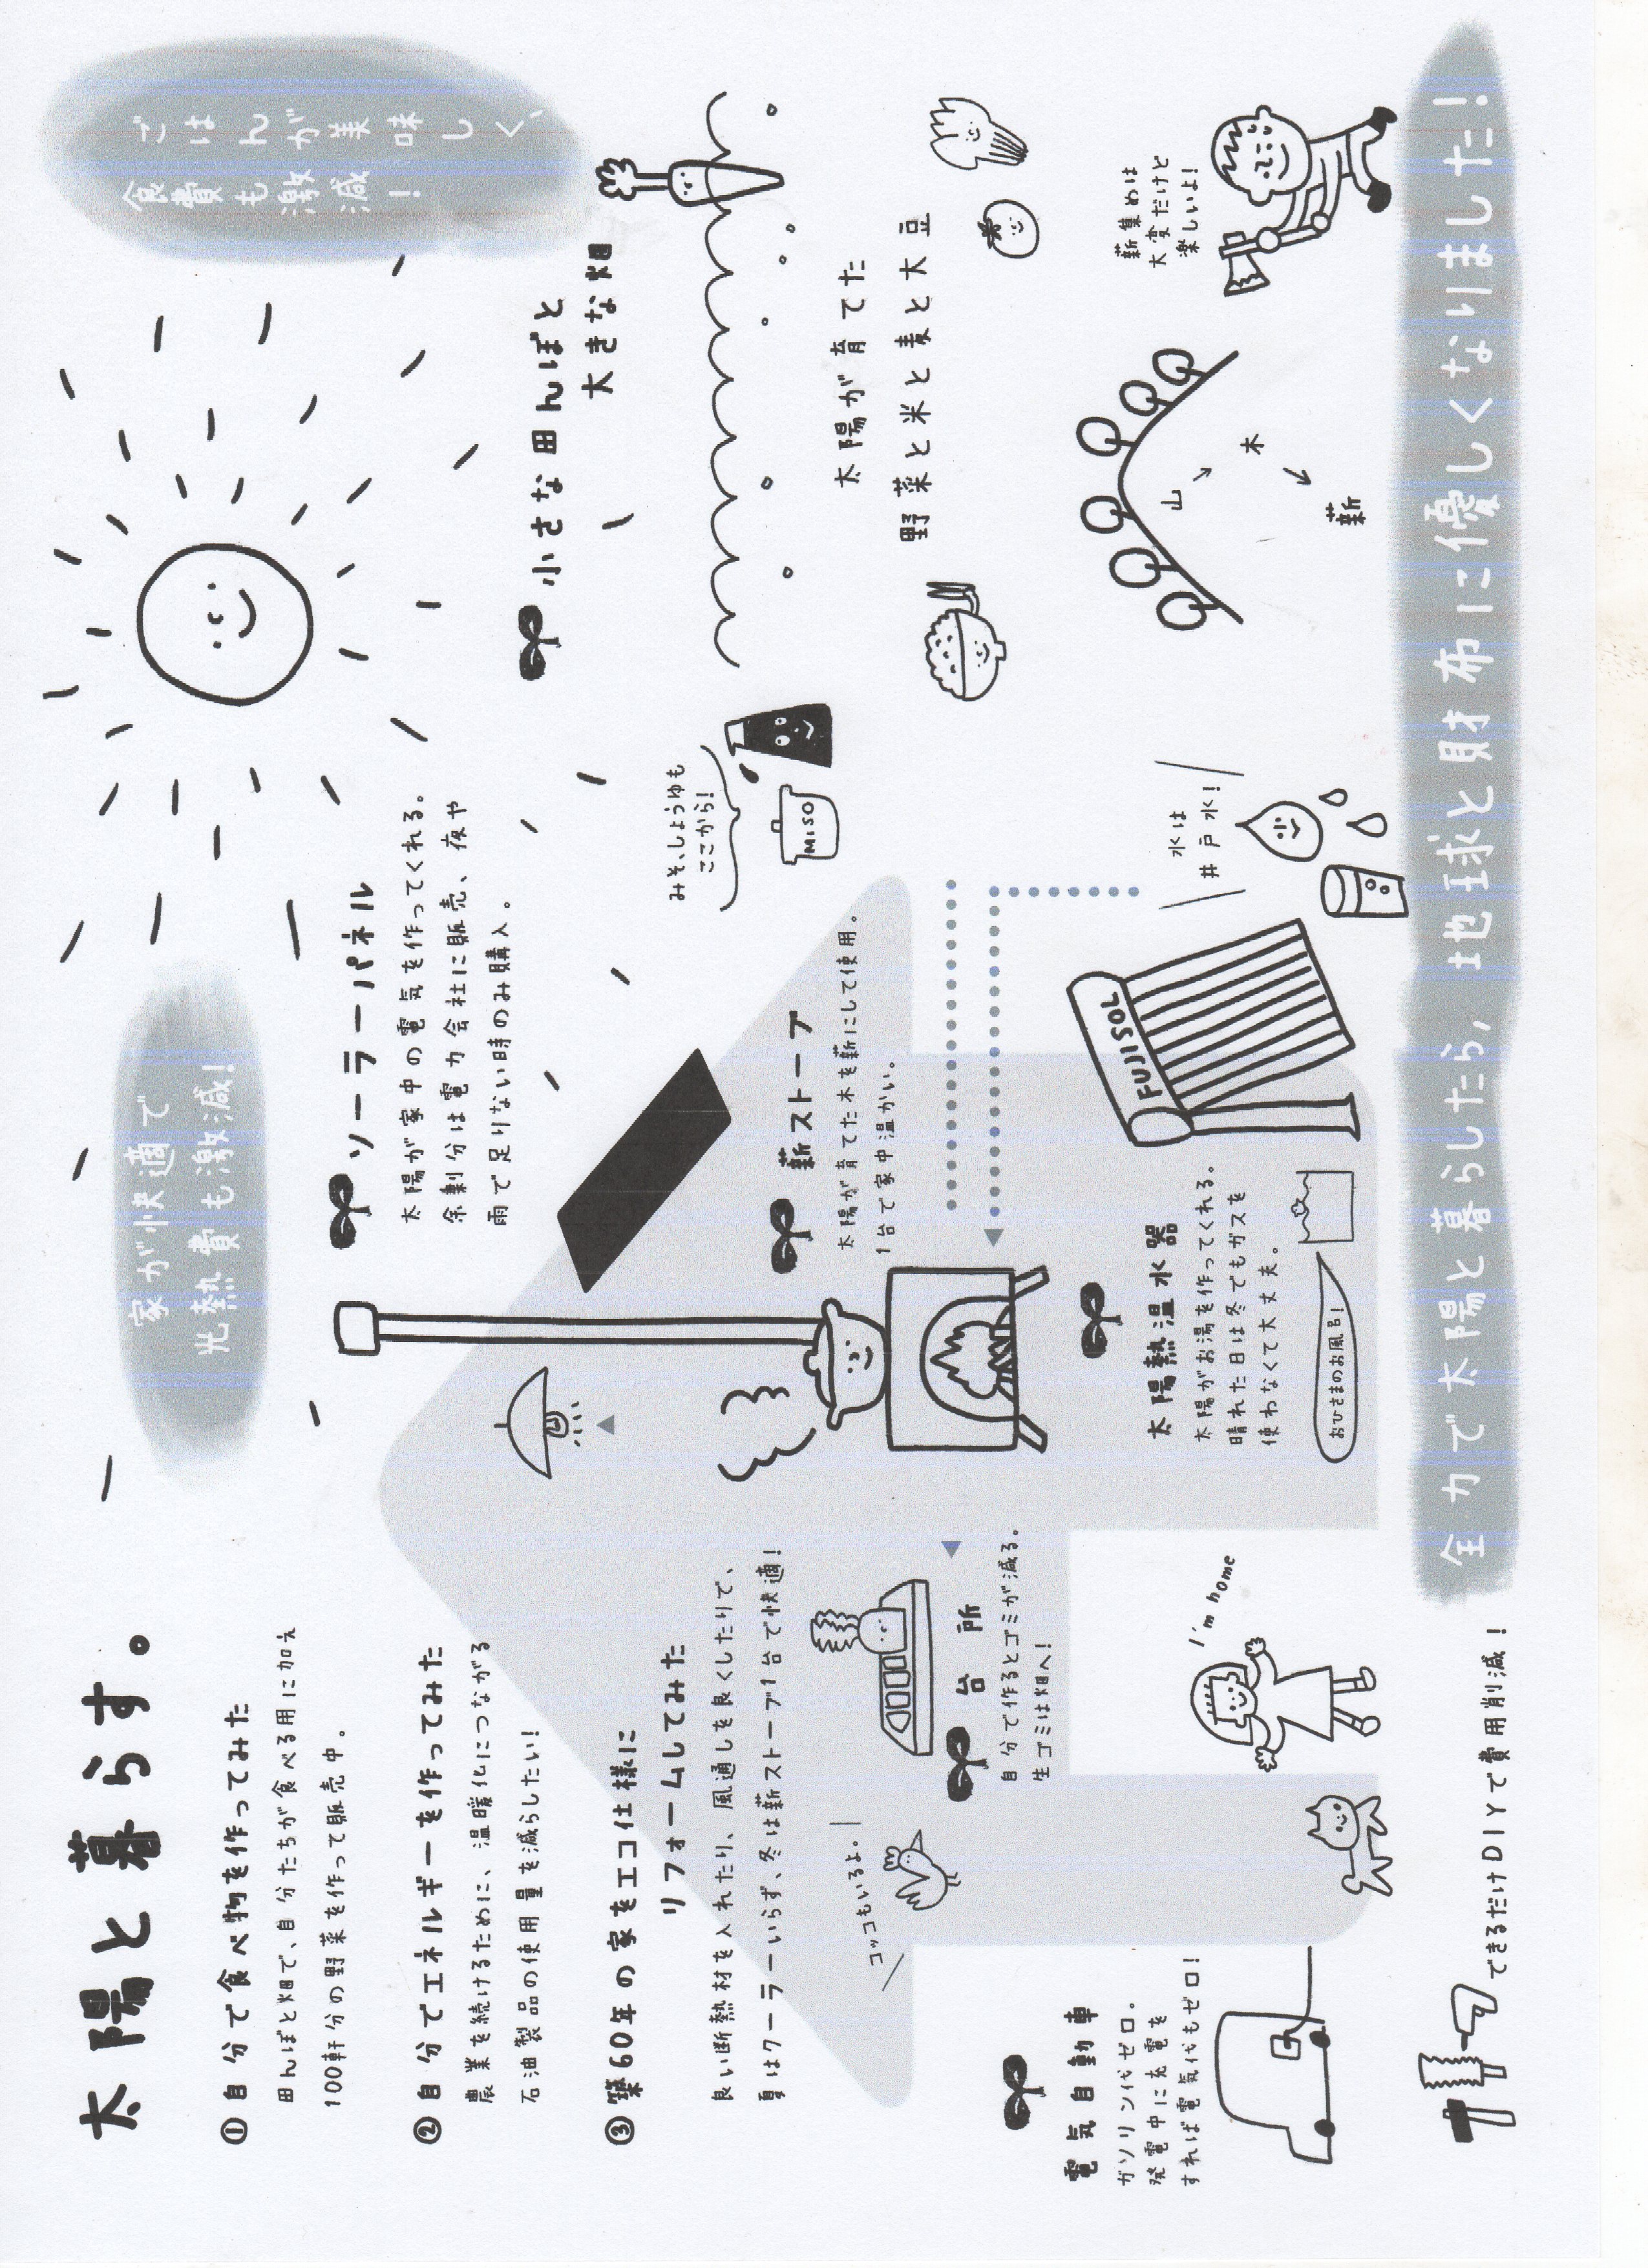 太陽と暮らす。
①自分で食べ物を作ってみた
田んぼと畑で、自分たちが食べる用に加え
100軒分の野菜を作って販売中。
②自分でエネルギーを作ってみた
農業を続けるために、温暖化につながる
石油製品の使用量を減らしたい！
③築60年の家をエコ仕様に
リフォームしてみた
良い断熱材を入れたり、風通しを良くしたりで、
夏はクーラーいらず、冬は薪ストーブ1台で快適！
家が快適で
光熱費も激減！
ごはんが美味しく、
食費も激減！
ソーラーパネル
太陽が家中の電気を作ってくれる。
余剰分は電力会社に販売、夜や
雨で足りない時のみ購入。
小さな田んぼと
大きな畑
みそ、しょうゆも
ここから！
MISO
太陽が育てた
野菜と米と麦と大豆
薪ストーブ
太陽が育てた木を薪にして使用。
1台で家中温かい。
コッコもいるよ。
台所
自分で作るとゴミが減る。
生ゴミは畑へ！
電気自動車
ガソリン代ゼロ。
発電中に充電を
すれば電気代もゼロ！
I'm home
太陽熱温水器
太陽がお湯を作ってくれる。
晴れた日は冬でもガスを
使わなくて大丈夫。
おひさまのお風呂！
FUJISOL
水は
井戸水！
山
木
薪
薪集めは
大変だけど
楽しいよ！
できるだけDIYで費用削減！
全力で太陽と暮らしたら、地球と財布に優しくなりました！